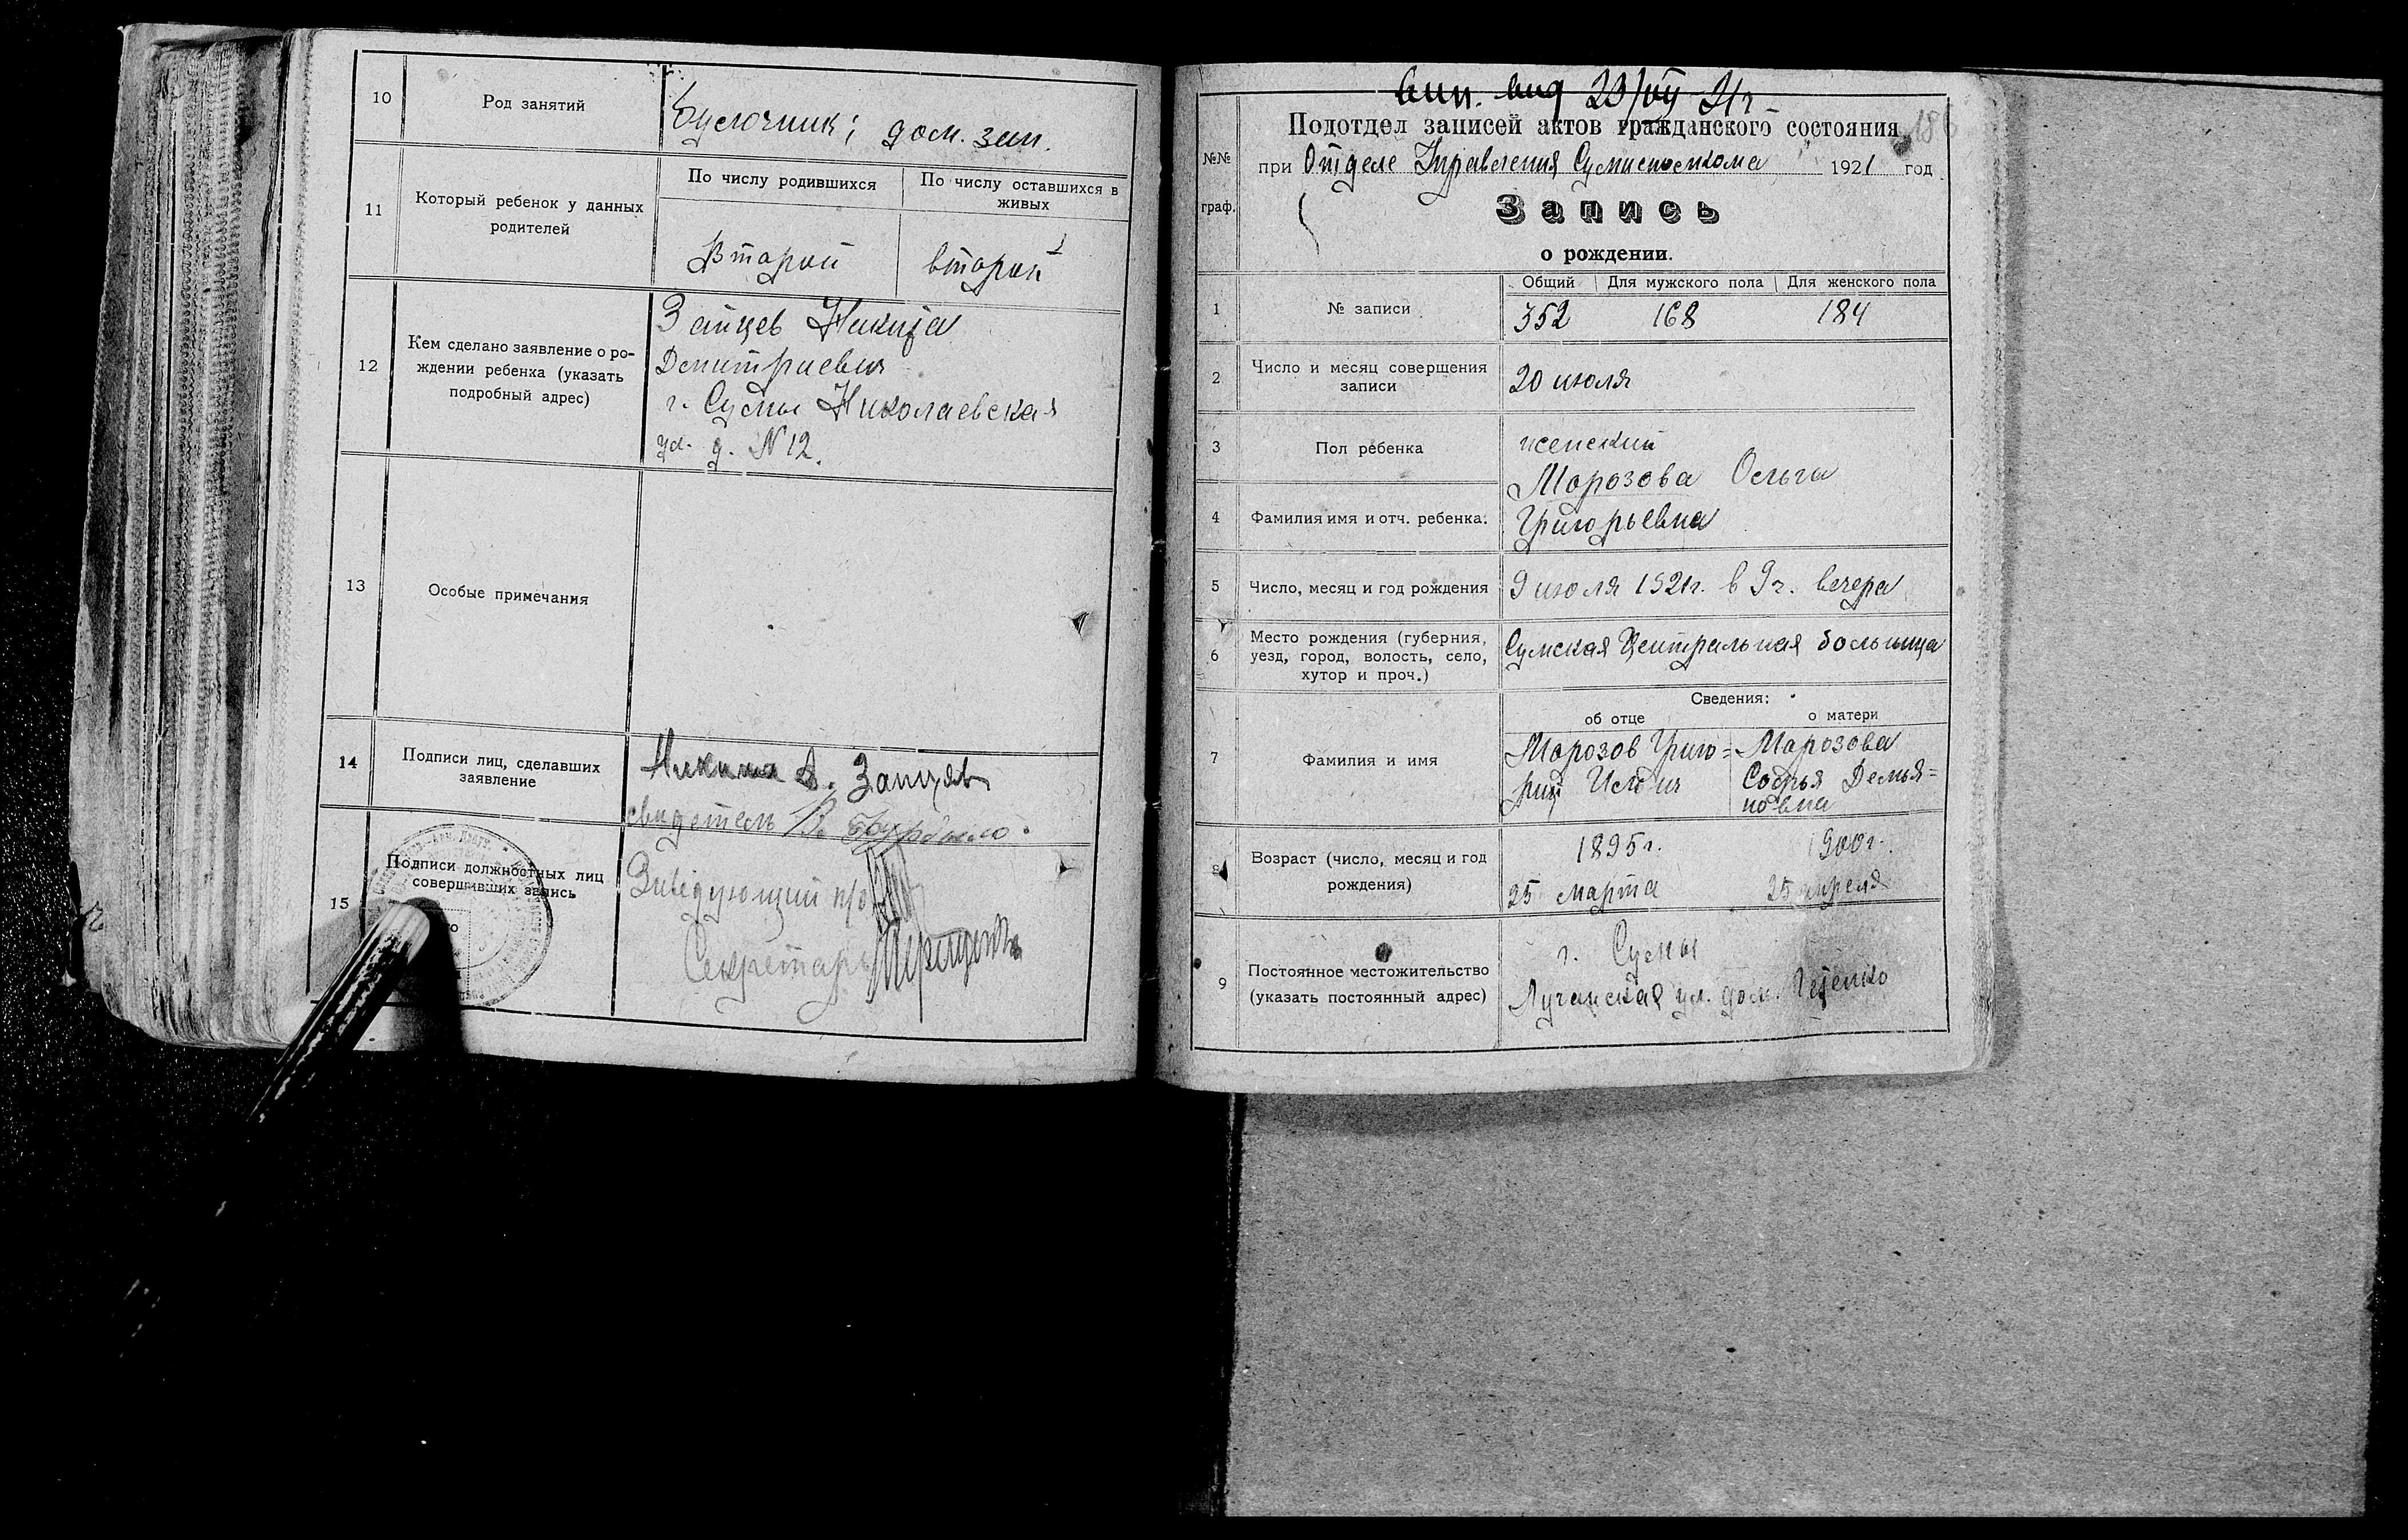 10 Род занятий
Булочник; дом. зан.
11 Который ребенок у данных
родителей
По числу родившихся
По числу оставшихся в
живых
Второй
второй
12 Кем сделано заявление о ро-
ждении ребенка (указать
подробный адрес)
Зайцев Никита
Демитриевич
г. Сумы Николаевская
ул. д. N 12.
13 Особые примечания
14 Подписи лиц, сделавших
заявление
Никита Д. Зайцев
свидетель
15 Подписи должностных лиц
совершивших запись
Заведующий п/о
Секретарь
вып. выд 23/VII 21г
Подотдел записей актов гражданского состояния
№№
граф.
при Отделе Управления Сумисполкома 1921 год
Запись
о рождении.
1 № записи
Общий Для мужского пола Для женского пола
352 168 184
2 Число и месяц совершения
записи
20 июля
3 Пол ребенка
женский
4 Фамилия имя и отч. ребенка.
Морозова Ольга
Григорьевна
5 Число, месяц и год рождения
9 июля 1921г. в 9 ч. вечера
6 Место рождения (губерния,
уезд, город, волость, село,
хутор и проч.)
Сумская Центральная больница
Сведения:
об отце о матери
7 Фамилия и имя
Морозов Григо=
рий Ильич
Марозова
Софья Демья=
новна
8 Возраст (число, месяц и год
рождения)
1895г.
25 марта
1900г.
25 апреля
9 Постоянное местожительство
(указать постоянный адрес)
г. Сумы
Луганская ул. дом.